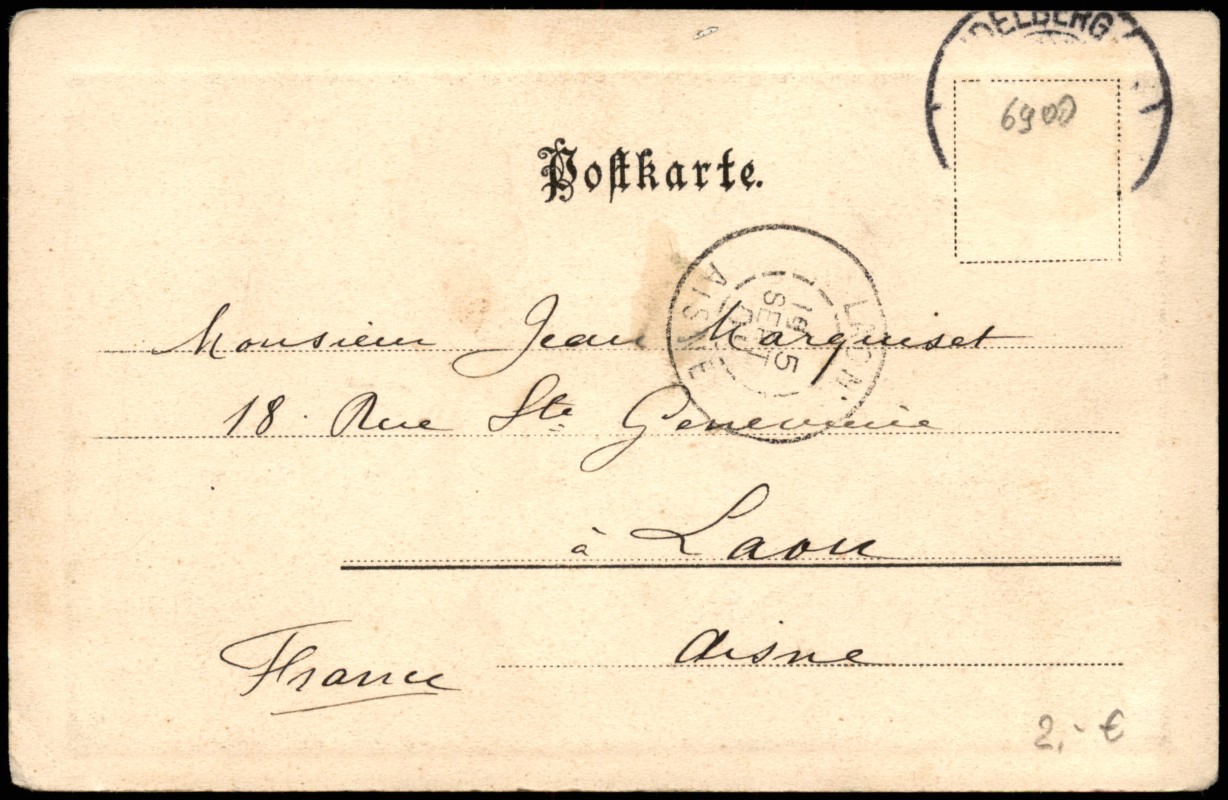 DELBERG
6900
Postkarte.
LAON
AISNE
5
SEPT
Monsieur Jean Marquiset
18 Rue Ste Genevieve
à Laon
Aisne
France
2,- €